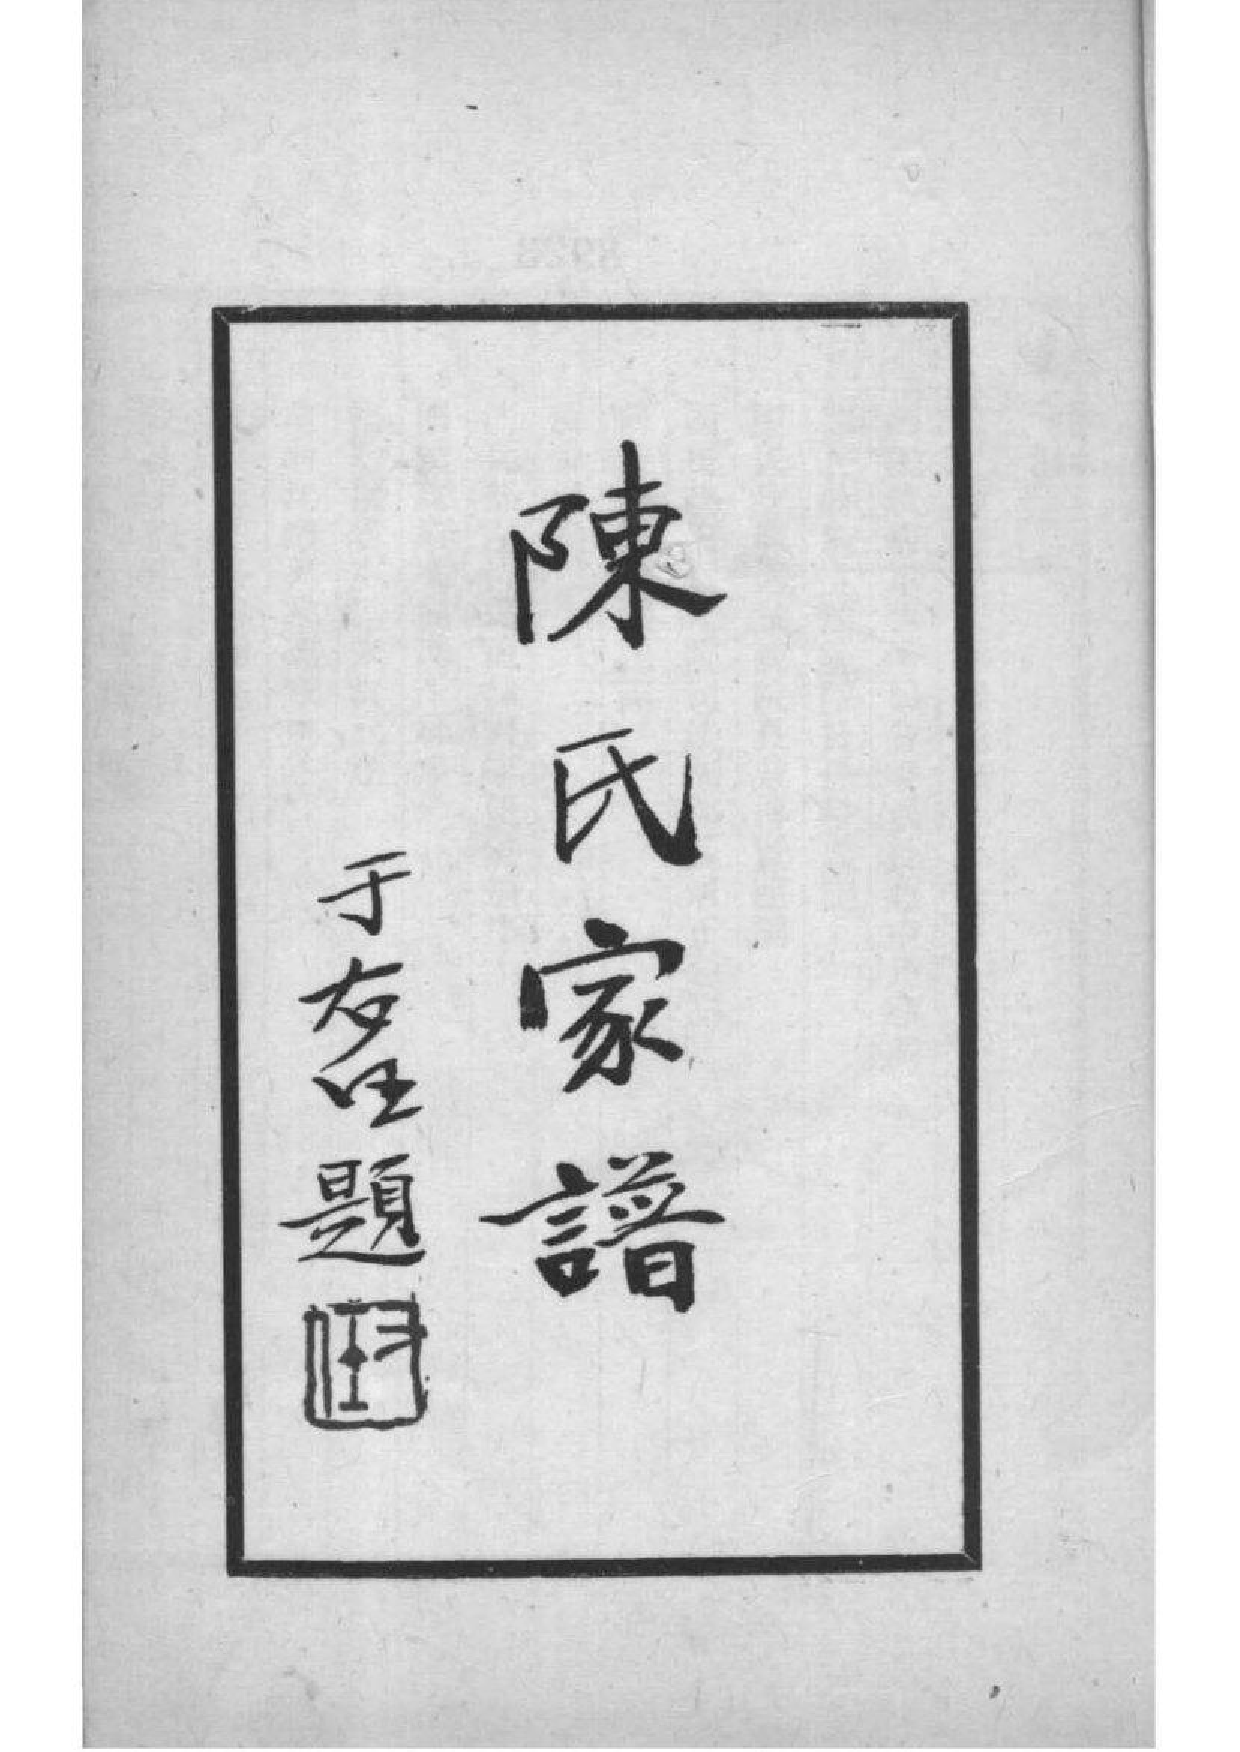 陳氏家譜
于右任題
右任